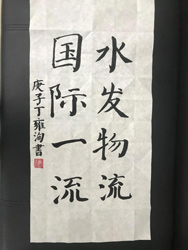 水发物流
国际一流
庚子丁雍洵書